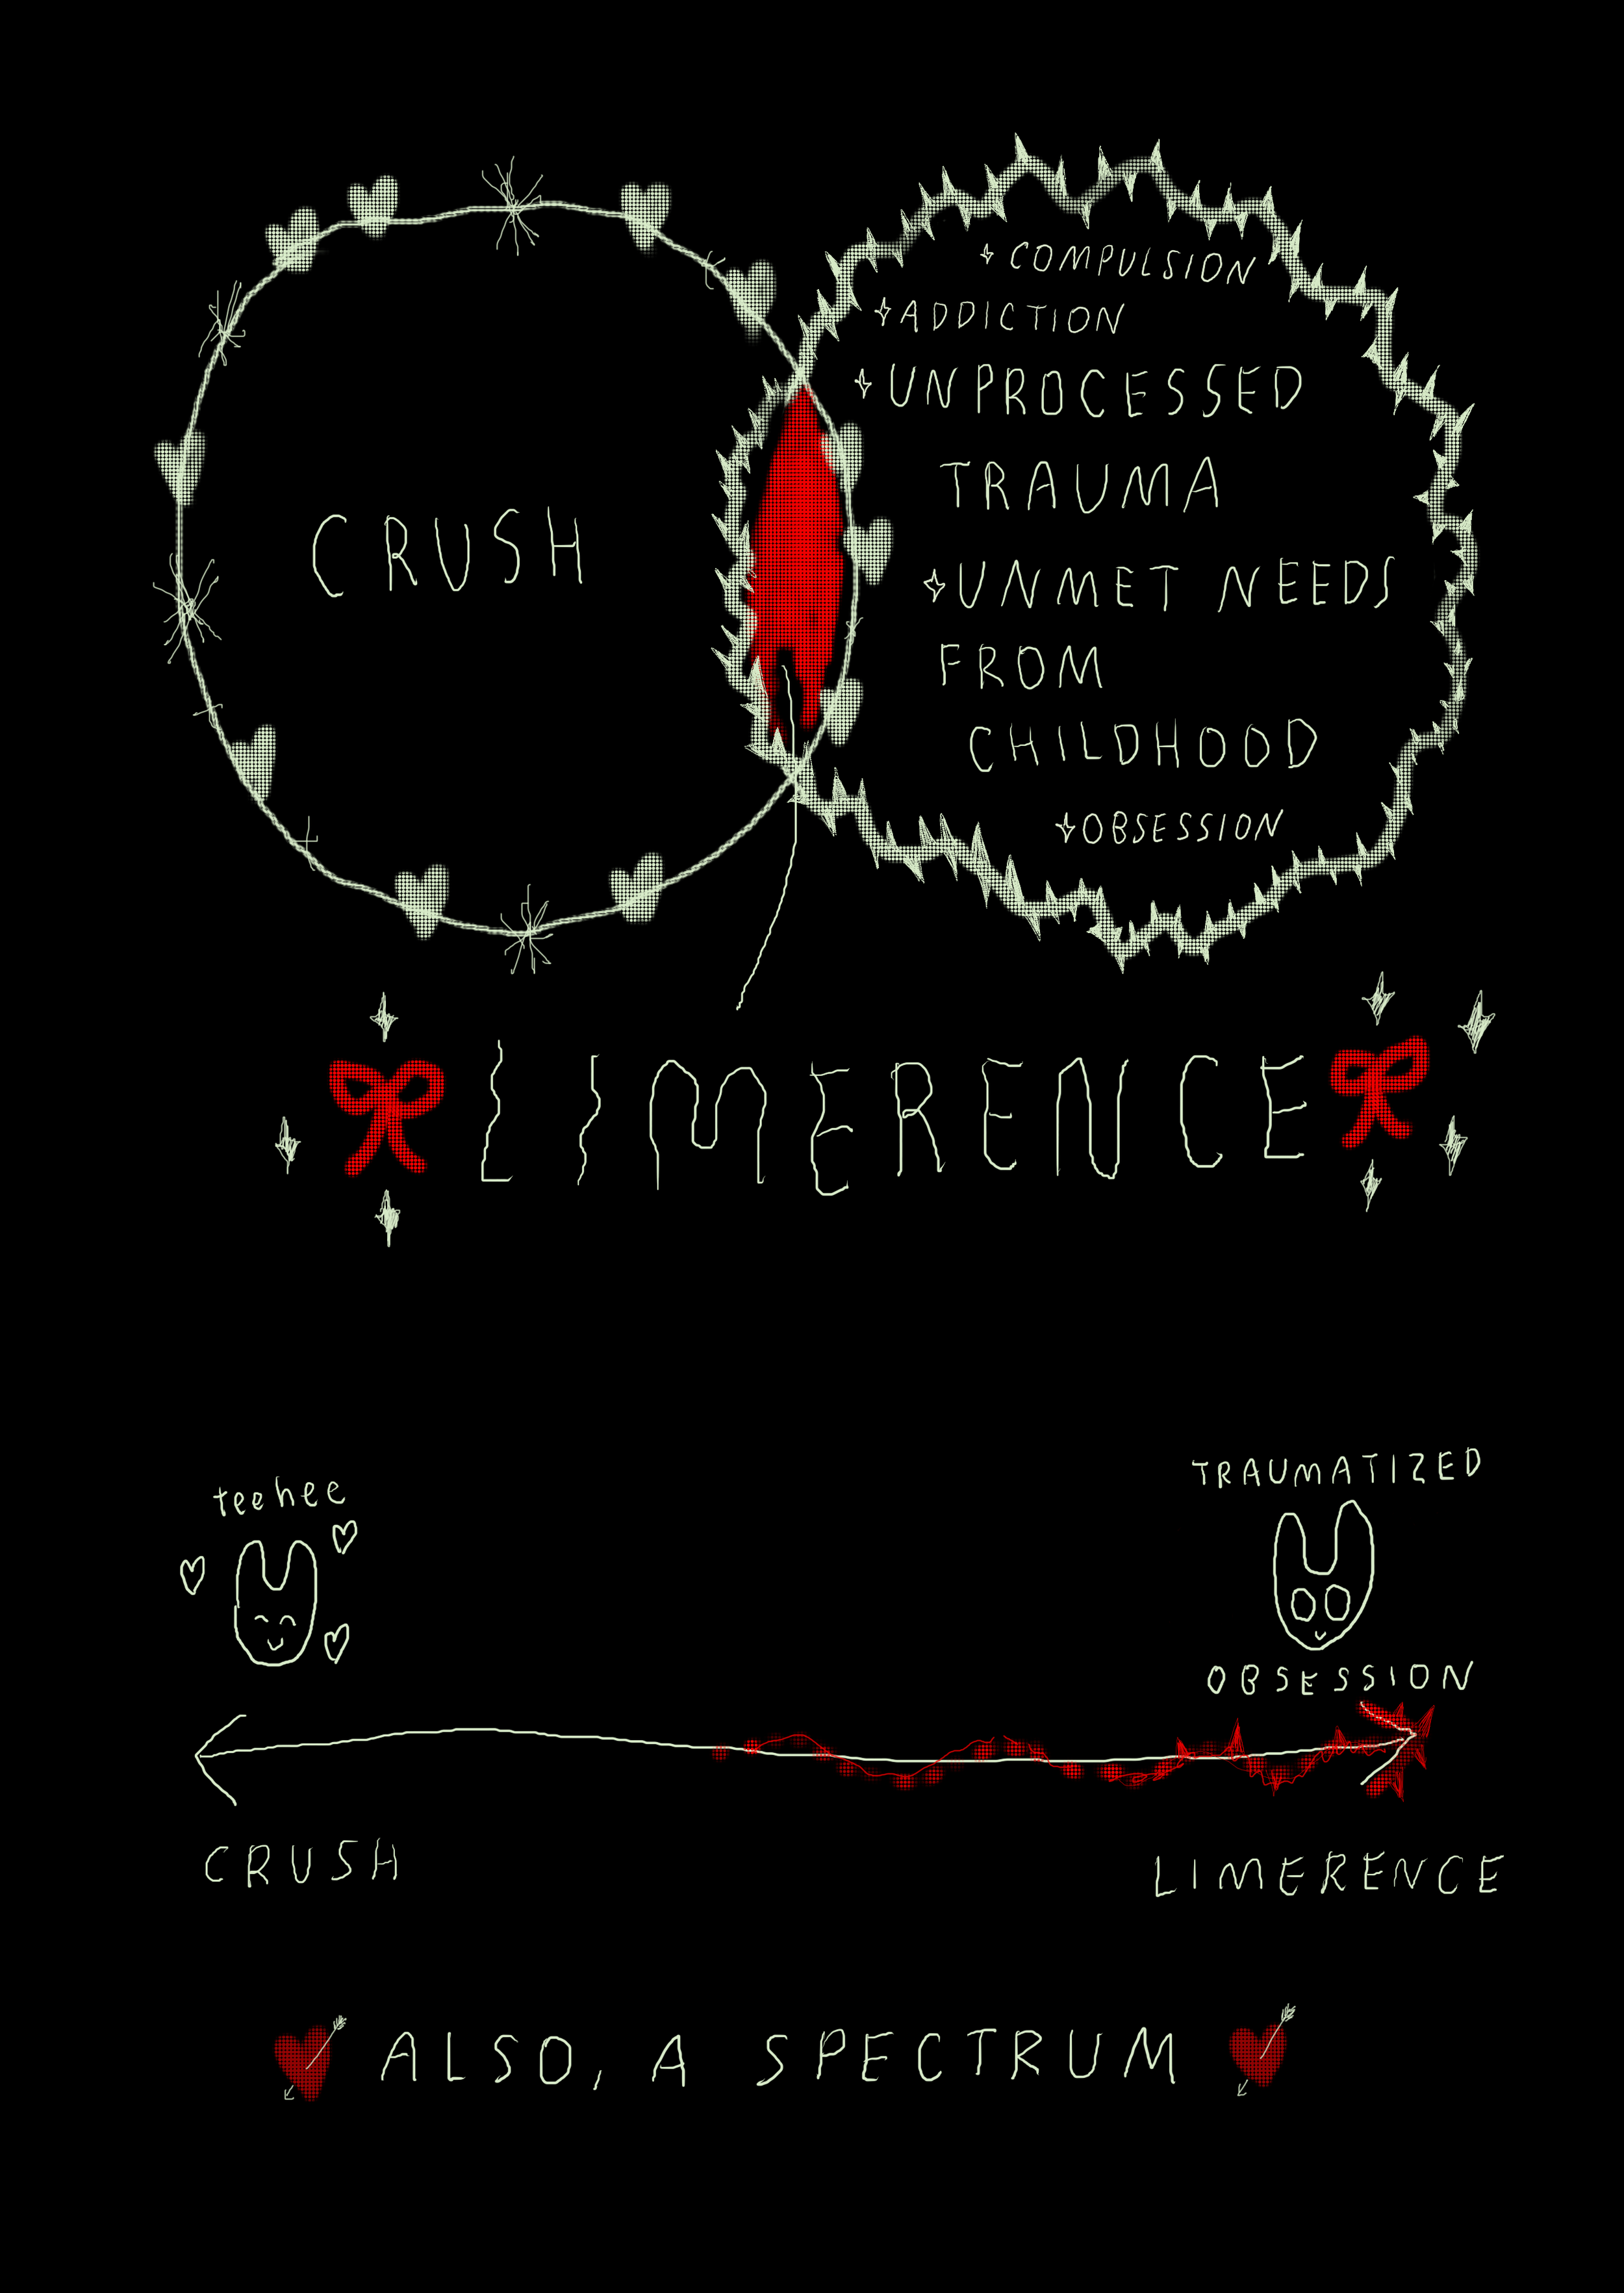 CRUSH
COMPULSION
ADDICTION
UNPROCESSED
TRAUMA
UNMET NEEDS
FROM
CHILDHOOD
OBSESSION
LIMERENCE
teehee
TRAUMATIZED
OBSESSION
CRUSH
LIMERENCE
ALSO, A SPECTRUM